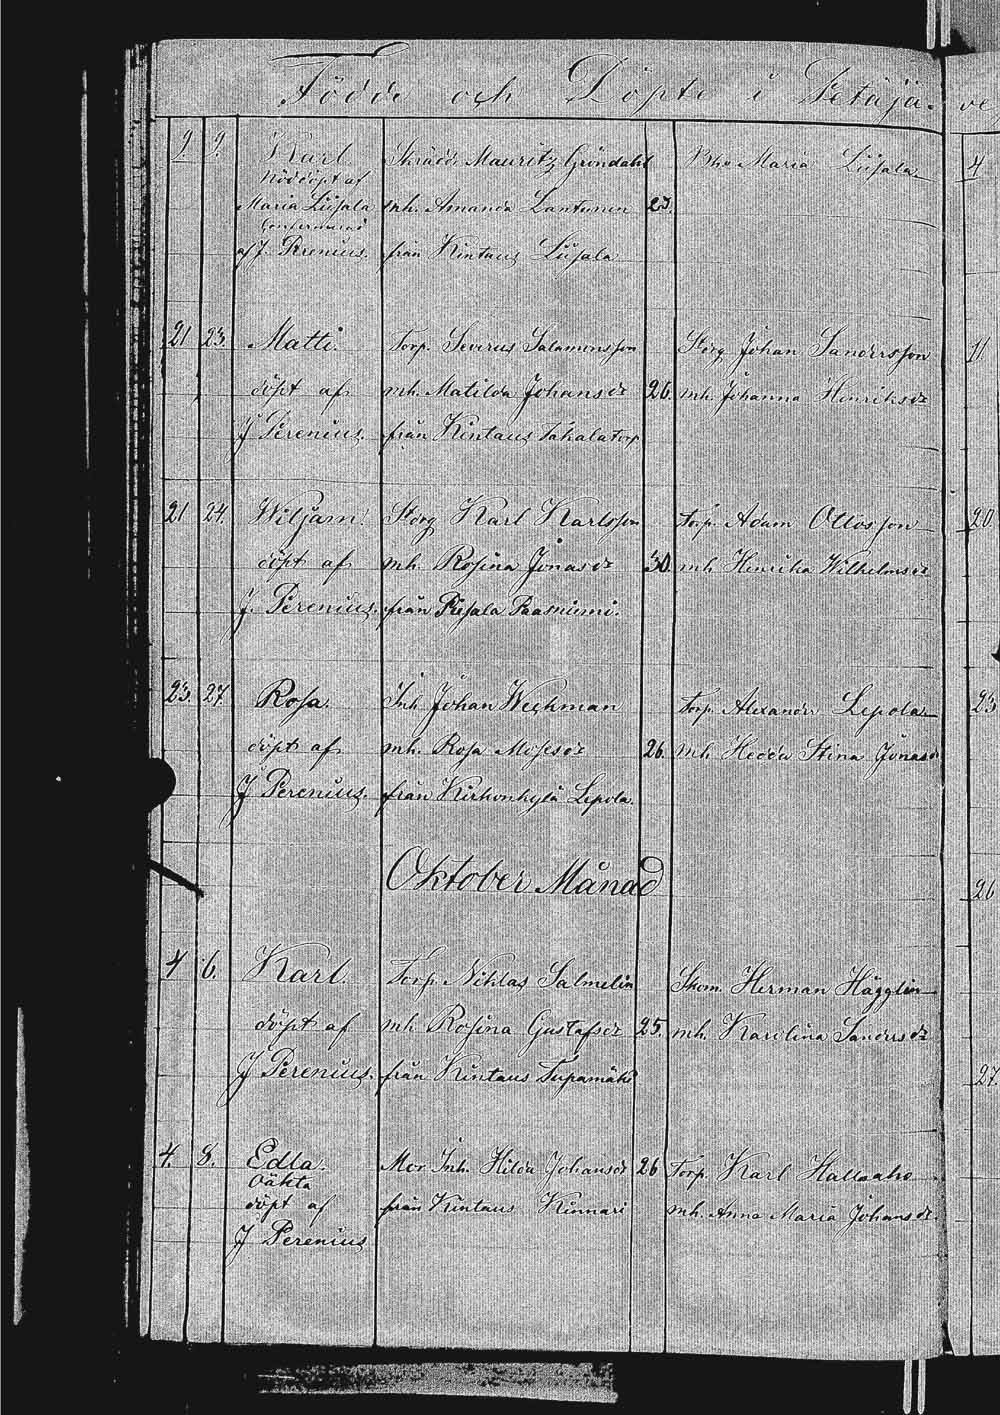 Födde och Döpte i Petäjä- ve
9. 9. Karl Skrädd. Mauritz Gröndahl Maria Liisala 4
Nöddöpt af
Maria Liisala mh. Amanda Lantonen 23.
Confirmerad
af J. Perenius. från Kintaus Liisala
21 23. Matti. Torp. Severus Salamonsson Störg Johan Sandersson 11
döpt af mh. Matilda Johansdr 26. mh. Johanna Henriksdr
J Perenius. från Kintaus Torp
21 24. Wiljam. Störg Karl Karlsson Torp. Adam Ottosson 20.
döpt af mh. Rosina Jonasdr 30. mh Henrika Wilhelmsdr
J. Perenius. från Piesala Paasniemi.
23. 27. Rosa. Inh Johan Weckman Torp. Alexander Lepola 23
döpt af mh. Rosa Mosesdr 26. mh Hedda Stina Jonasd
J Perenius. från Kirkonkylä Lepola.
Oktober Månad
26
4 6. Karl. Torp. Niklas Salmelin Skom. Herman Hägglin
döpt af mh. Rosina Gustafsdr 25. mh. Karolina Sandersdr
J Perenius. från Kintaus Supamäki 27
4. 8. Edla. Mor Inh. Hilda Johansdr 26 Torp. Karl Hallaaho
Oäkta
döpt af från Kintaus Kinnari mh. Anna Maria Johansdr.
J Perenius